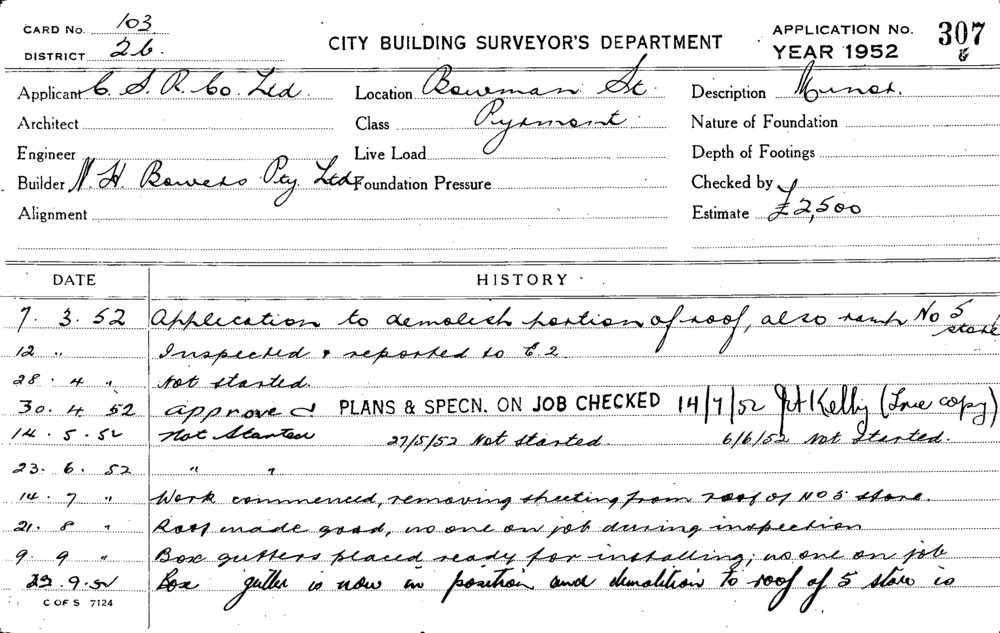 CARD No. 103
DISTRICT 26.
CITY BUILDING SURVEYOR'S DEPARTMENT
APPLICATION No. 307
YEAR 1952
Applicant C. S. R. Co. Ltd.
Location Bowman St.
Description Minor.
Architect
Class Pyrmont
Nature of Foundation
Engineer
Live Load
Depth of Footings
Builder N. H. Bowers Pty. Ltd.
Foundation Pressure
Checked by
Alignment
Estimate £2,500
DATE HISTORY
7. 3. 52 Application to demolish portion of roof, also ramp No 5 store
12 " Inspected & reported to E.2.
28. 4 " Not started.
30. 4 52 Approved PLANS & SPECN. ON JOB CHECKED 14/7/52 Kelly (True copy)
14. 5. 52 Not Started 27/5/52 Not Started. 6/6/52 Not Started.
23. 6. 52 " "
14. 7 " Work commenced, removing sheeting from roof of No 5 store.
21. 8 " Roof made good, no one on job during inspection
9. 9 " Box gutters placed ready for installing; no one on job
22. 9. 52 Box gutter is now in position and demolition to roof of 5 store is
C OF S 7124